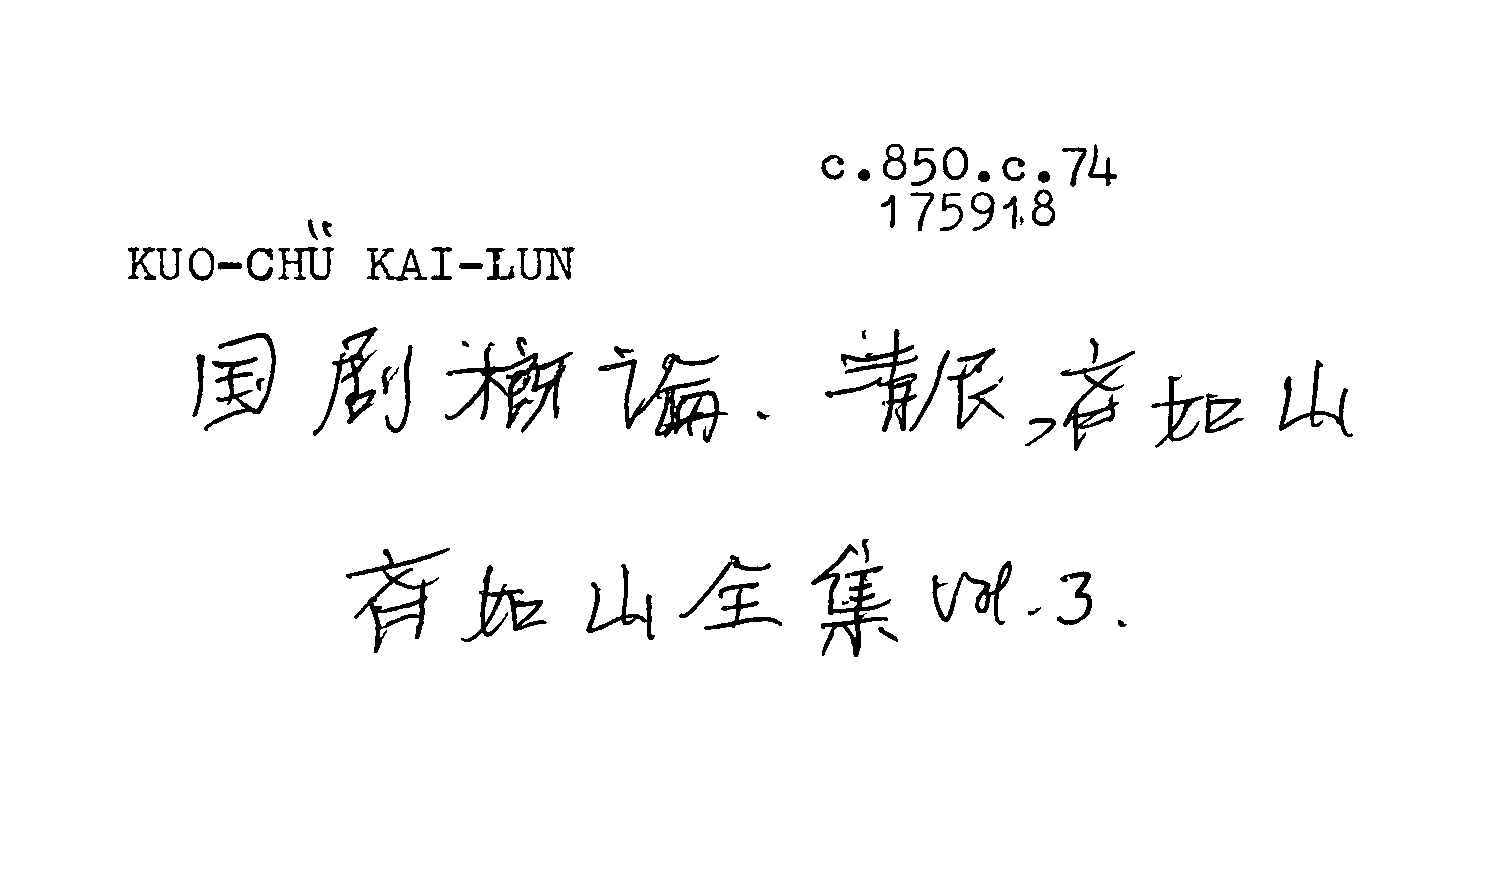 c.850.c.74
175918
KUO-CHÜ KAI-LUN
国剧概論. 清辰,齐如山
齐如山全集 vol.3.